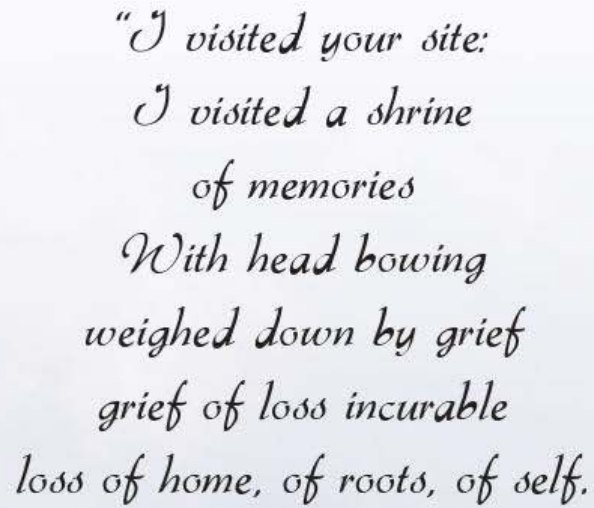 “I visited your site:
I visited a shrine
of memories
With head bowing
weighed down by grief
grief of loss incurable
loss of home, of roots, of self.